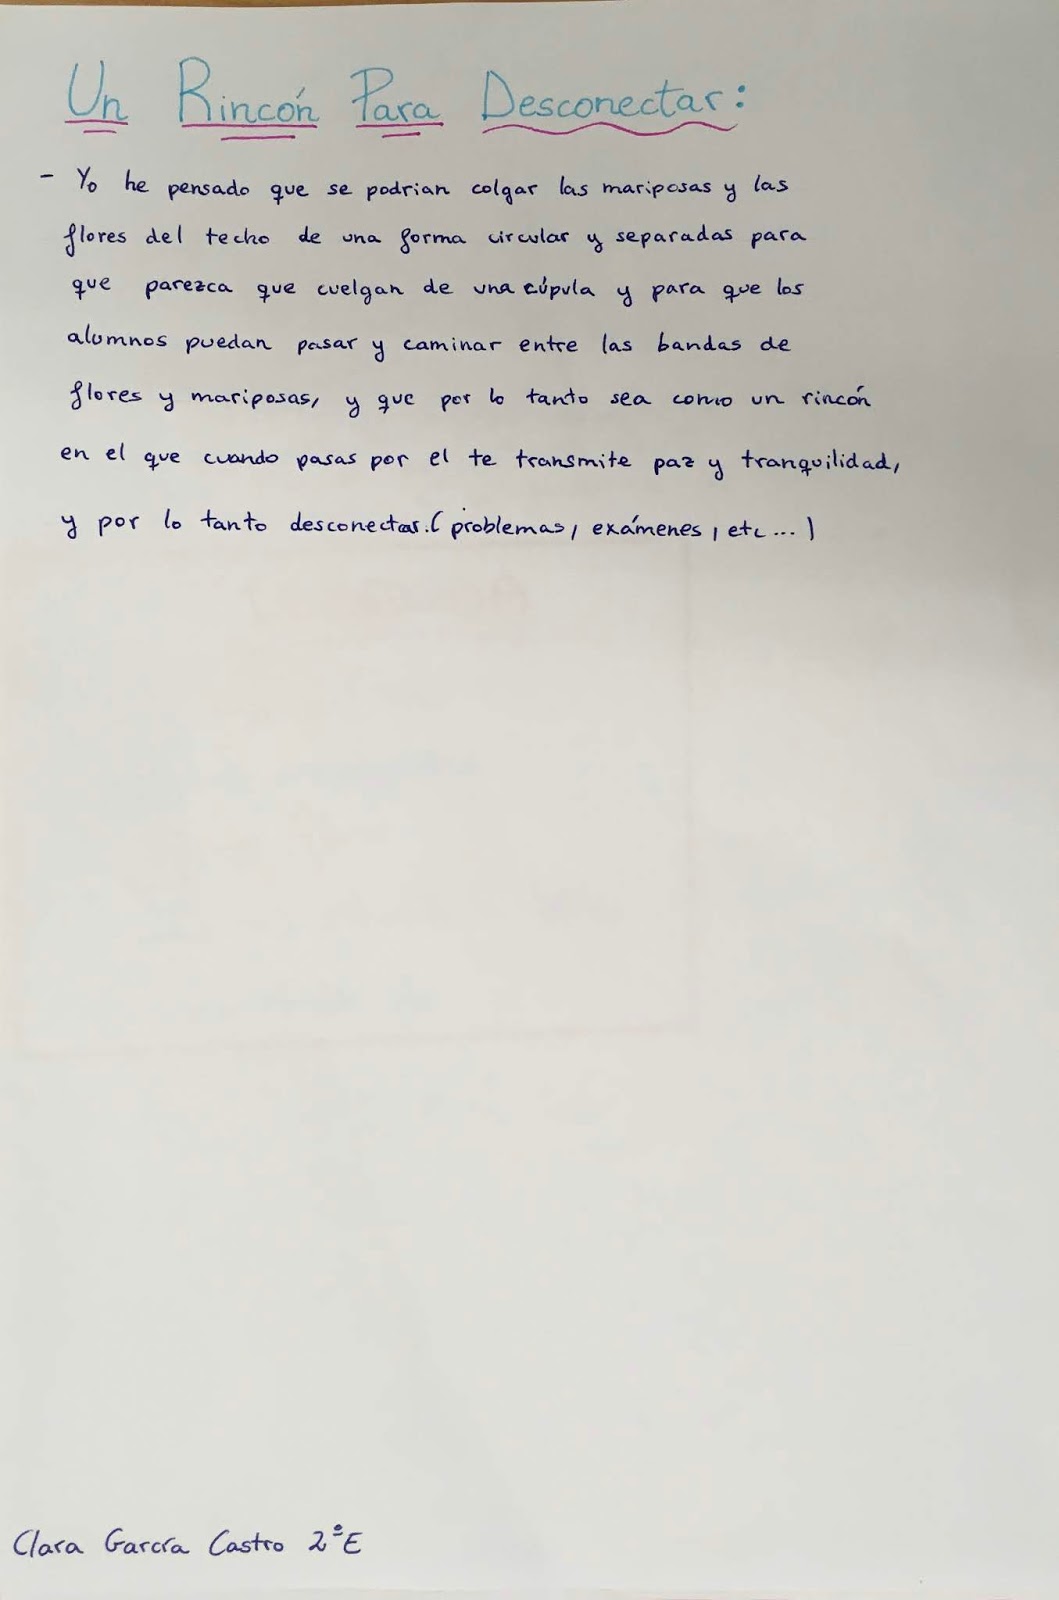 Un Rincón Para Desconectar:
- Yo he pensado que se podrian colgar las mariposas y las
flores del techo de una forma circular y separadas para
que parezca que cuelgan de una cúpula y para que los
alumnos puedan pasar y caminar entre las bandas de
flores y mariposas, y que por lo tanto sea como un rincón
en el que cuando pasas por el te transmite paz y tranquilidad,
y por lo tanto desconectar. (problemas, exámenes, etc...)
Clara García Castro 2ºE